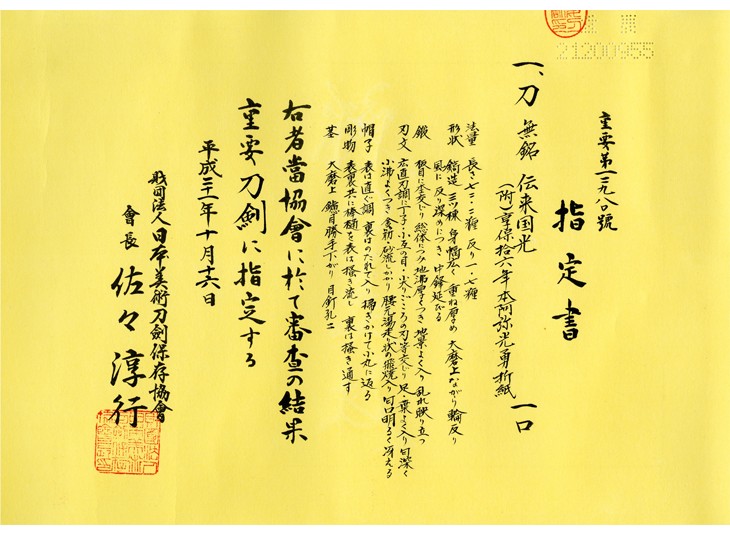 21200955
重要第一三九八〇號
指定書
一、刀 無銘 伝来国光 一口
(附)享保拾六年本阿弥光勇折紙
法量 長さ七二・二糎 反り一・七糎
形状 鎬造 三ツ棟 身幅広く 重ね厚め 大磨上ながり輪反り
風に反り深めにつき 中鋒延びる
鍛 板目に杢交じり 総体につみ 地沸厚くつき 地景よく入り 乱れ映り立つ
刃文 広直刃調に丁子・小互の目・尖りごころの刃等交じり 足・葉よく入り 匂深く
小沸よくつき 金筋・砂流しかかり 腰元湯走り状の飛焼入り 匂口明るく冴える
帽子 表は直ぐ調 裏はのたれて入り 掃きかけて小丸に返る
彫物 表裏共に棒樋を表は掻き流し 裏は掻き通す
茎 大磨上 鑢目勝手下がり 目釘孔二
右者當協會に於て審査の結果
重要刀剣に指定する
平成二十一年十月十六日
財団法人日本美術刀剣保存協會
會長 佐々淳行